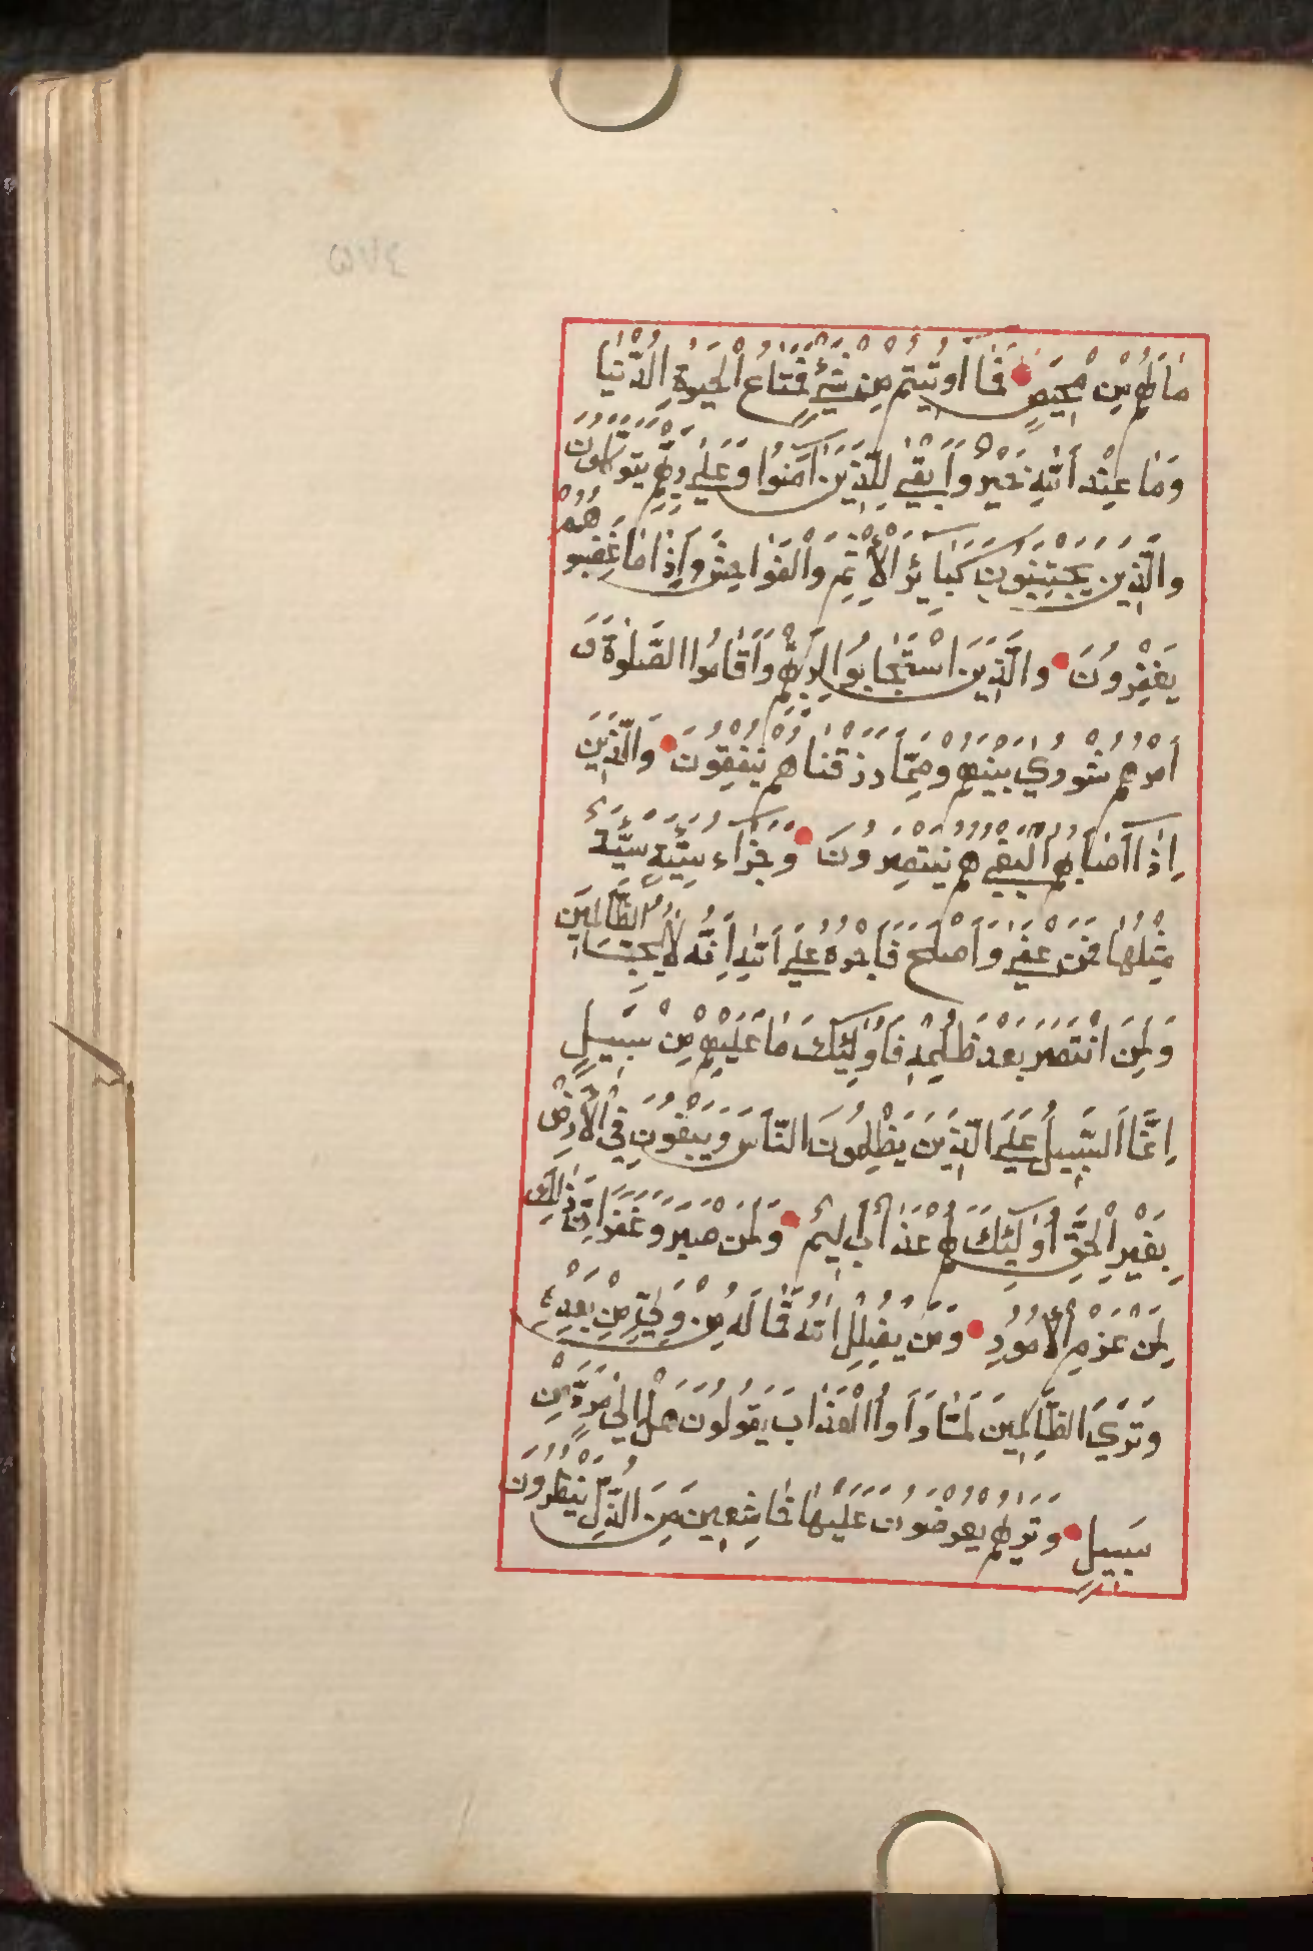 مَا لَهُمْ مِنْ مَحِيصٍ فَمَا أُوتِيتُمْ مِنْ شَيْءٍ فَمَتَاعُ الْحَيٰوةِ الدُّنْيَا
وَمَا عِنْدَ اللَّهِ خَيْرٌ وَأَبْقَى لِلَّذِينَ آمَنُوا وَعَلَى رَبِّهِمْ يَتَوَكَّلُونَ
وَالَّذِينَ يَجْتَنِبُونَ كَبَائِرَ الْإِثْمِ وَالْفَوَاحِشَ وَإِذَا مَا غَضِبُوا هُمْ
يَغْفِرُونَ وَالَّذِينَ اسْتَجَابُوا لِرَبِّهِمْ وَأَقَامُوا الصَّلٰوةَ وَ
أَمْرُهُمْ شُورَى بَيْنَهُمْ وَمِمَّا رَزَقْنَاهُمْ يُنْفِقُونَ وَالَّذِينَ
إِذَا أَصَابَهُمُ الْبَغْيُ هُمْ يَنْتَصِرُونَ وَجَزَاءُ سَيِّئَةٍ سَيِّئَةٌ
مِثْلُهَا فَمَنْ عَفَى وَأَصْلَحَ فَأَجْرُهُ عَلَى اللَّهِ إِنَّهُ لَا يُحِبُّ الظَّالِمِينَ
وَلَمَنِ انْتَصَرَ بَعْدَ ظُلْمِهِ فَأُولَئِكَ مَا عَلَيْهِمْ مِنْ سَبِيلٍ
إِنَّمَا السَّبِيلُ عَلَى الَّذِينَ يَظْلِمُونَ النَّاسَ وَيَبْغُونَ فِي الْأَرْضِ
بِغَيْرِ الْحَقِّ أُولَئِكَ لَهُمْ عَذَابٌ أَلِيمٌ وَلَمَنْ صَبَرَ وَغَفَرَ إِنَّ ذَالِكَ
لَمِنْ عَزْمِ الْأُمُورِ وَمَنْ يُضْلِلِ اللَّهُ فَمَا لَهُ مِنْ وَلِيٍّ مِنْ بَعْدِهِ
وَتَرَى الظَّالِمِينَ لَمَّا رَأَوُا الْعَذَابَ يَقُولُونَ هَلْ إِلَى مَرَدٍّ مِنْ
سَبِيلٍ وَتَرٰيهُمْ يُعْرَضُونَ عَلَيْهَا خَاشِعِينَ مِنَ الذُّلِّ يَنْظُرُونَ